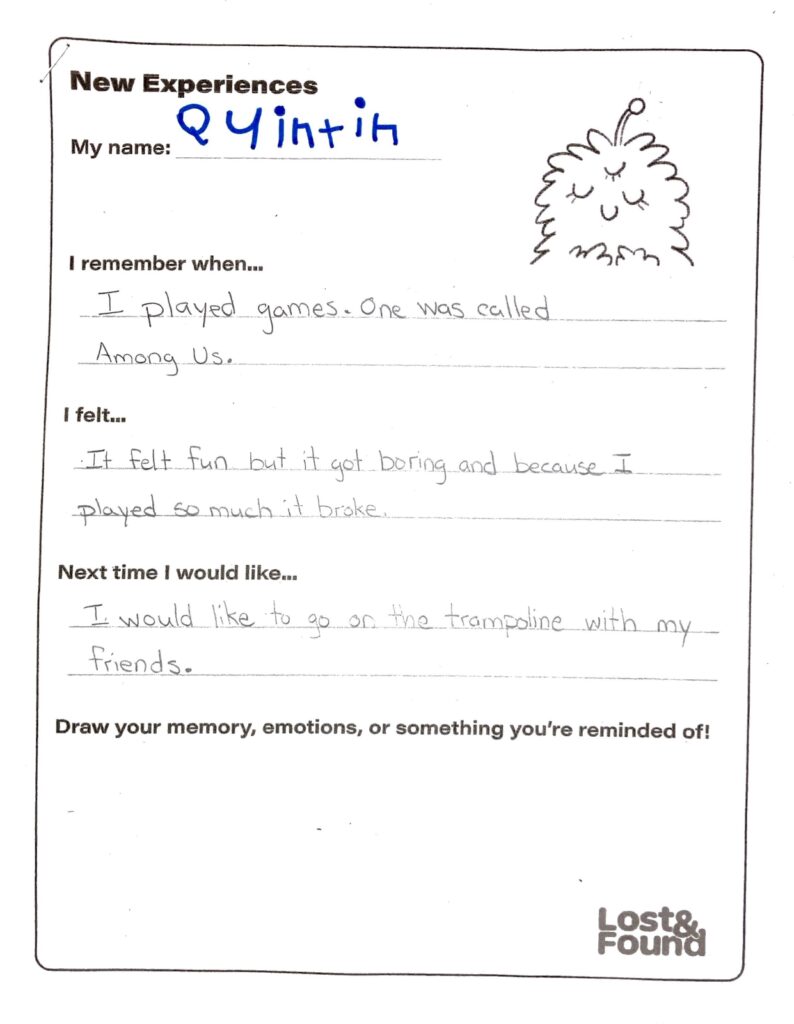 New Experiences
My name: Quintin
I remember when...
I played games. One was called
Among Us.
I felt...
It felt fun but it got boring and because I
played so much it broke.
Next time I would like...
I would like to go on the trampoline with my
friends.
Draw your memory, emotions, or something you're reminded of!
Lost&
Found